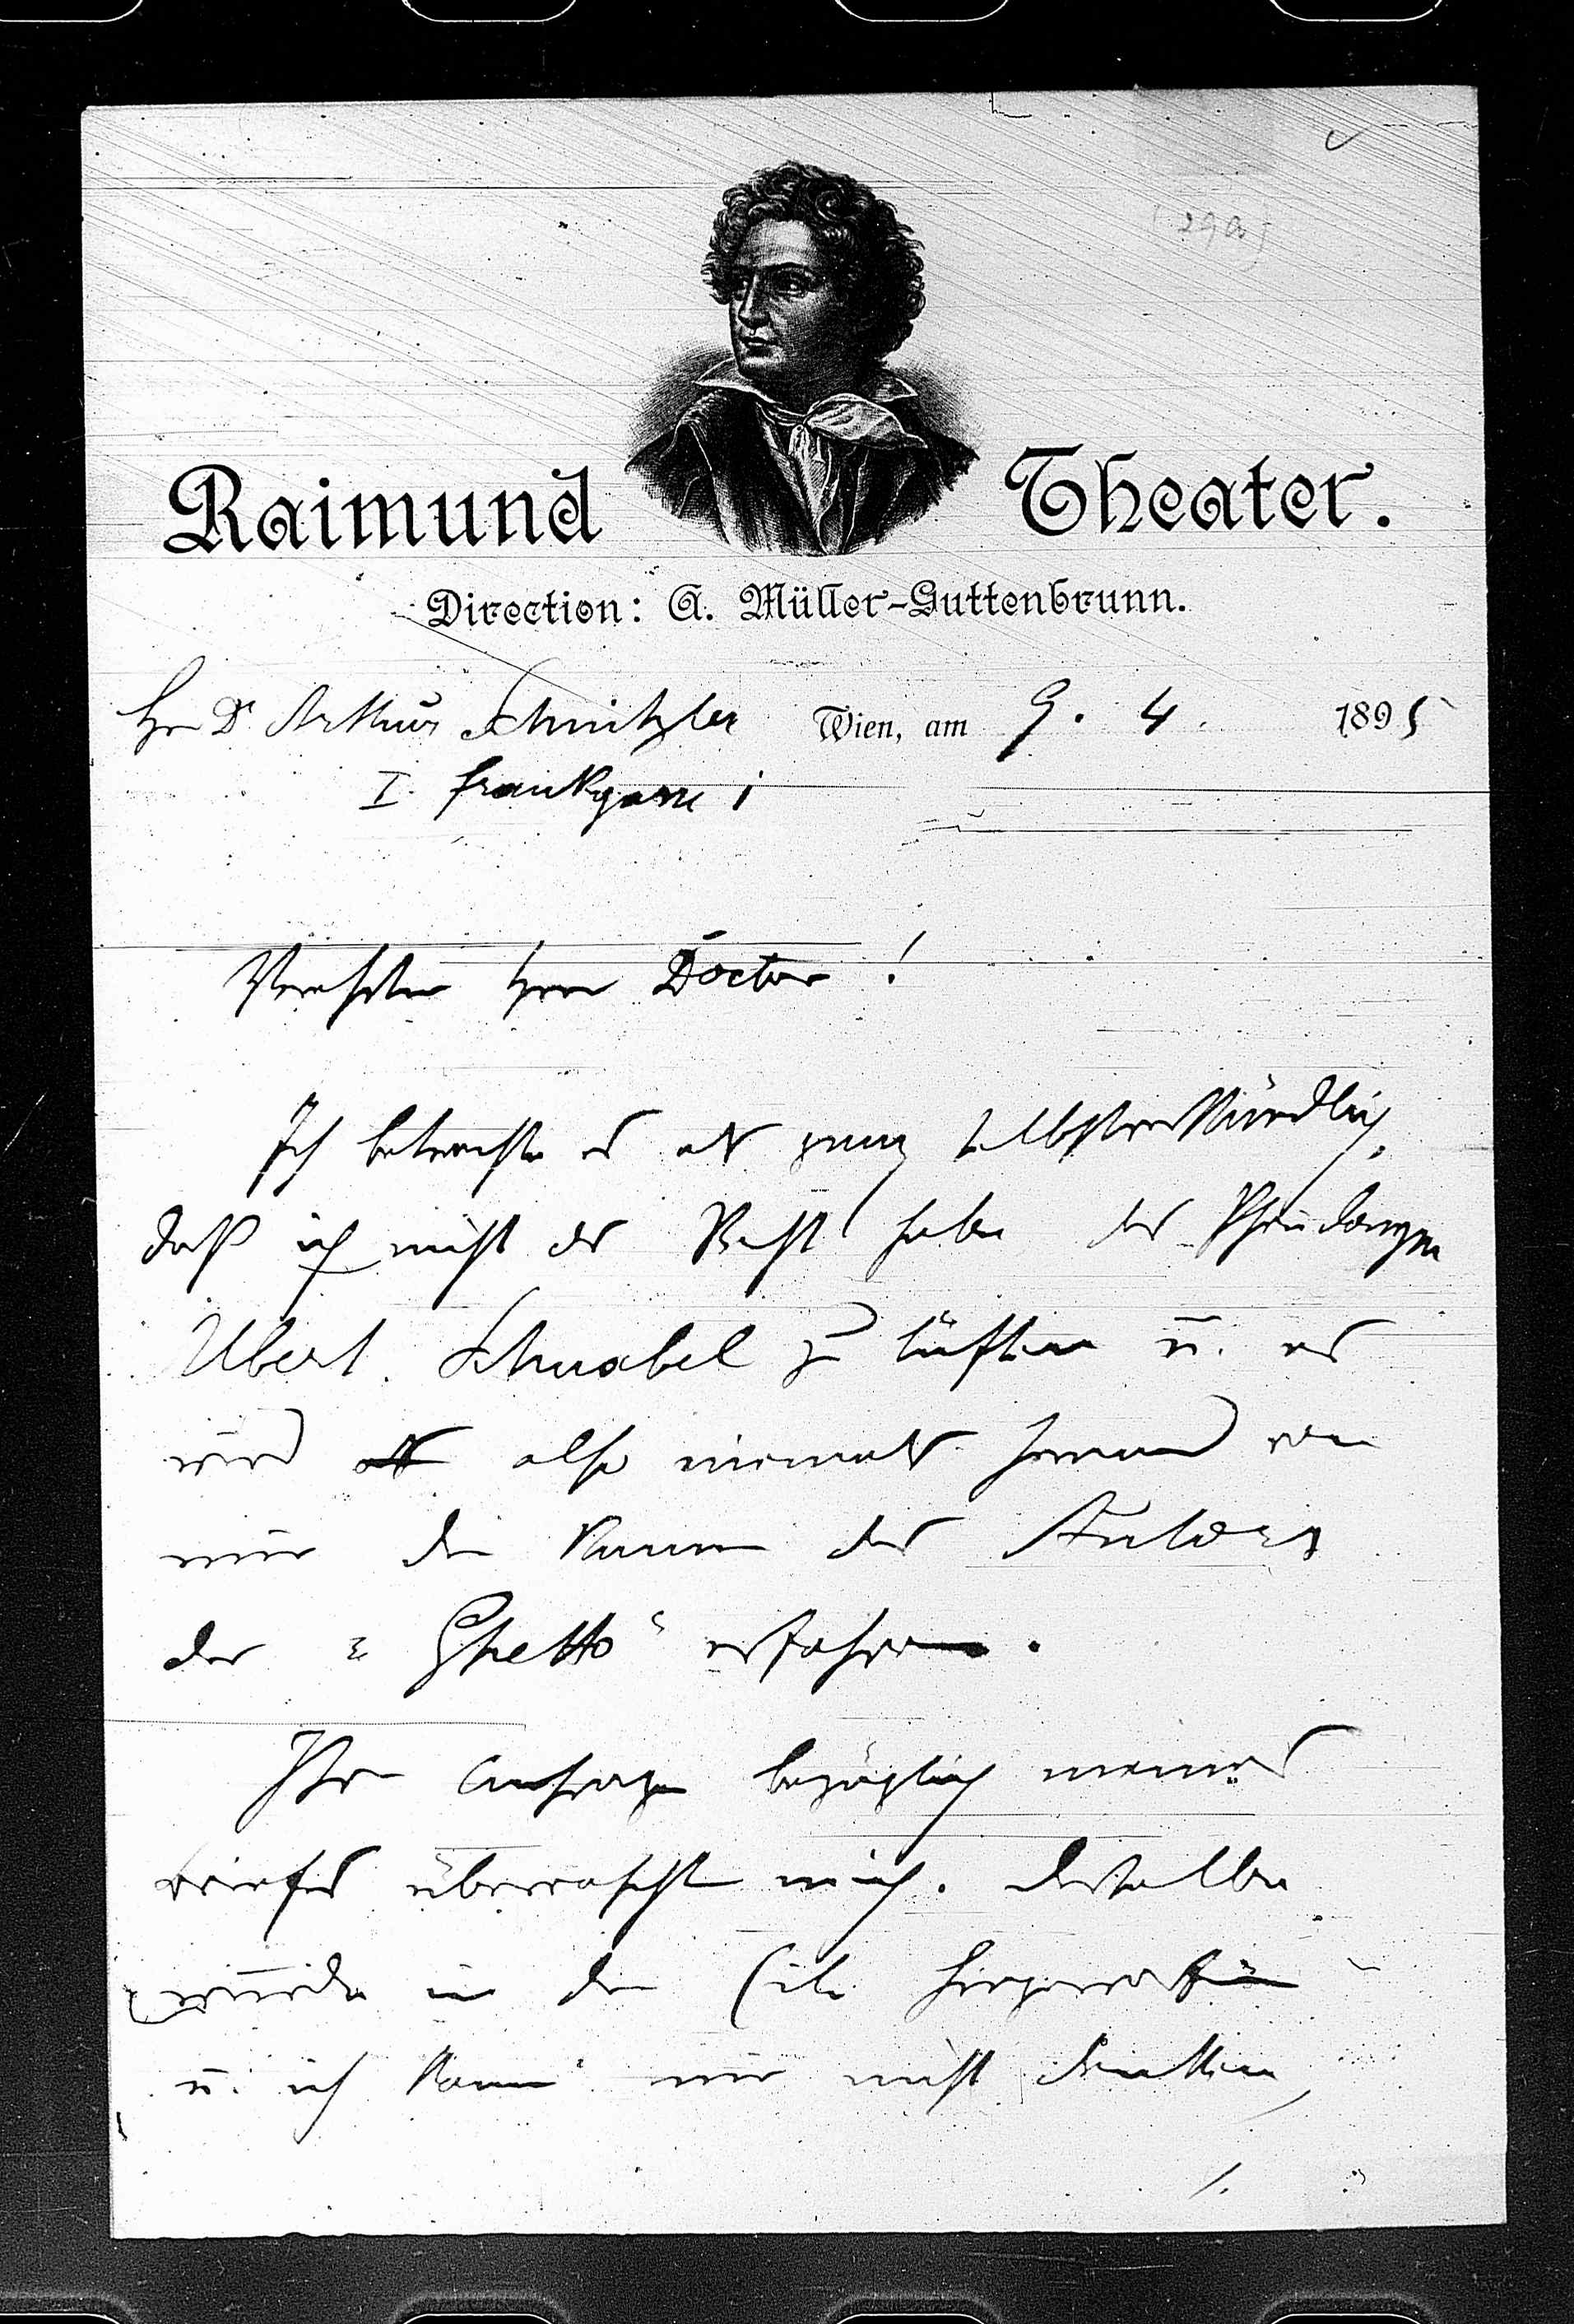 (29a)
Raimund Theater.
Direction: A. Müller-Guttenbrunn.
Hr Dr Arthur Schnitzler Wien, am 9. 4. 1895
I. Frankgasse 1
Verehrter Herr Doctor!
Ich betrachte es als ganz selbstverständlich,
daß ich nicht das Recht habe das Pseudonym
Albert Schnabel zu lüften u. es
wird also niemals jemand von
mir den Namen des Autors
des „Ghetto“ erfahren.
Ihre Anfrage bezüglich meines
Briefes überrascht mich. Derselbe
wurde in der Eile hingeworfen
u. ich kann mir nicht denken,
/.